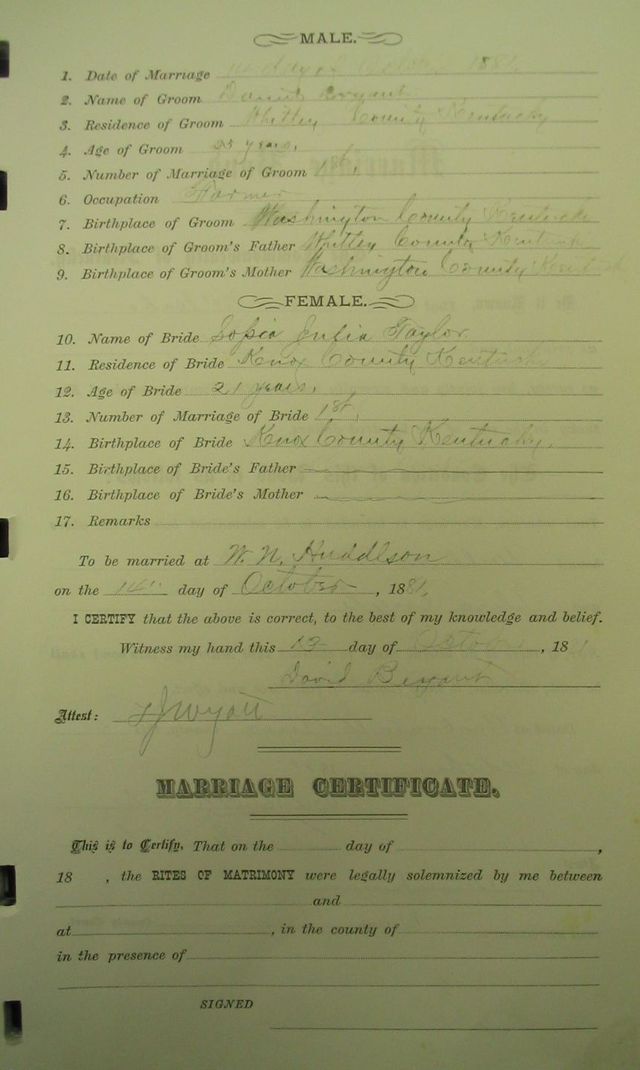 MALE.
1. Date of Marriage 14 day of October 1881
2. Name of Groom Bryant
3. Residence of Groom Whitley County Kentucky
4. Age of Groom years,
5. Number of Marriage of Groom 1st,
6. Occupation Farmer
7. Birthplace of Groom Washington County Kentucky
8. Birthplace of Groom's Father Whitley County Kentucky
9. Birthplace of Groom's Mother Washington County Kentucky
FEMALE.
10. Name of Bride Taylor
11. Residence of Bride Knox County Kentucky
12. Age of Bride 21 years,
13. Number of Marriage of Bride 1st,
14. Birthplace of Bride Knox County Kentucky.
15. Birthplace of Bride's Father
16. Birthplace of Bride's Mother
17. Remarks
To be married at W. N. Huddlson
on the 14" day of October, 1881,
I CERTIFY that the above is correct, to the best of my knowledge and belief.
Witness my hand this 13 day of October, 18
David Bryant
Attest: Wyatt
MARRIAGE CERTIFICATE.
This is to Certify, That on the day of ,
18 , the RITES OF MATRIMONY were legally solemnized by me between
and
at , in the county of
in the presence of
SIGNED